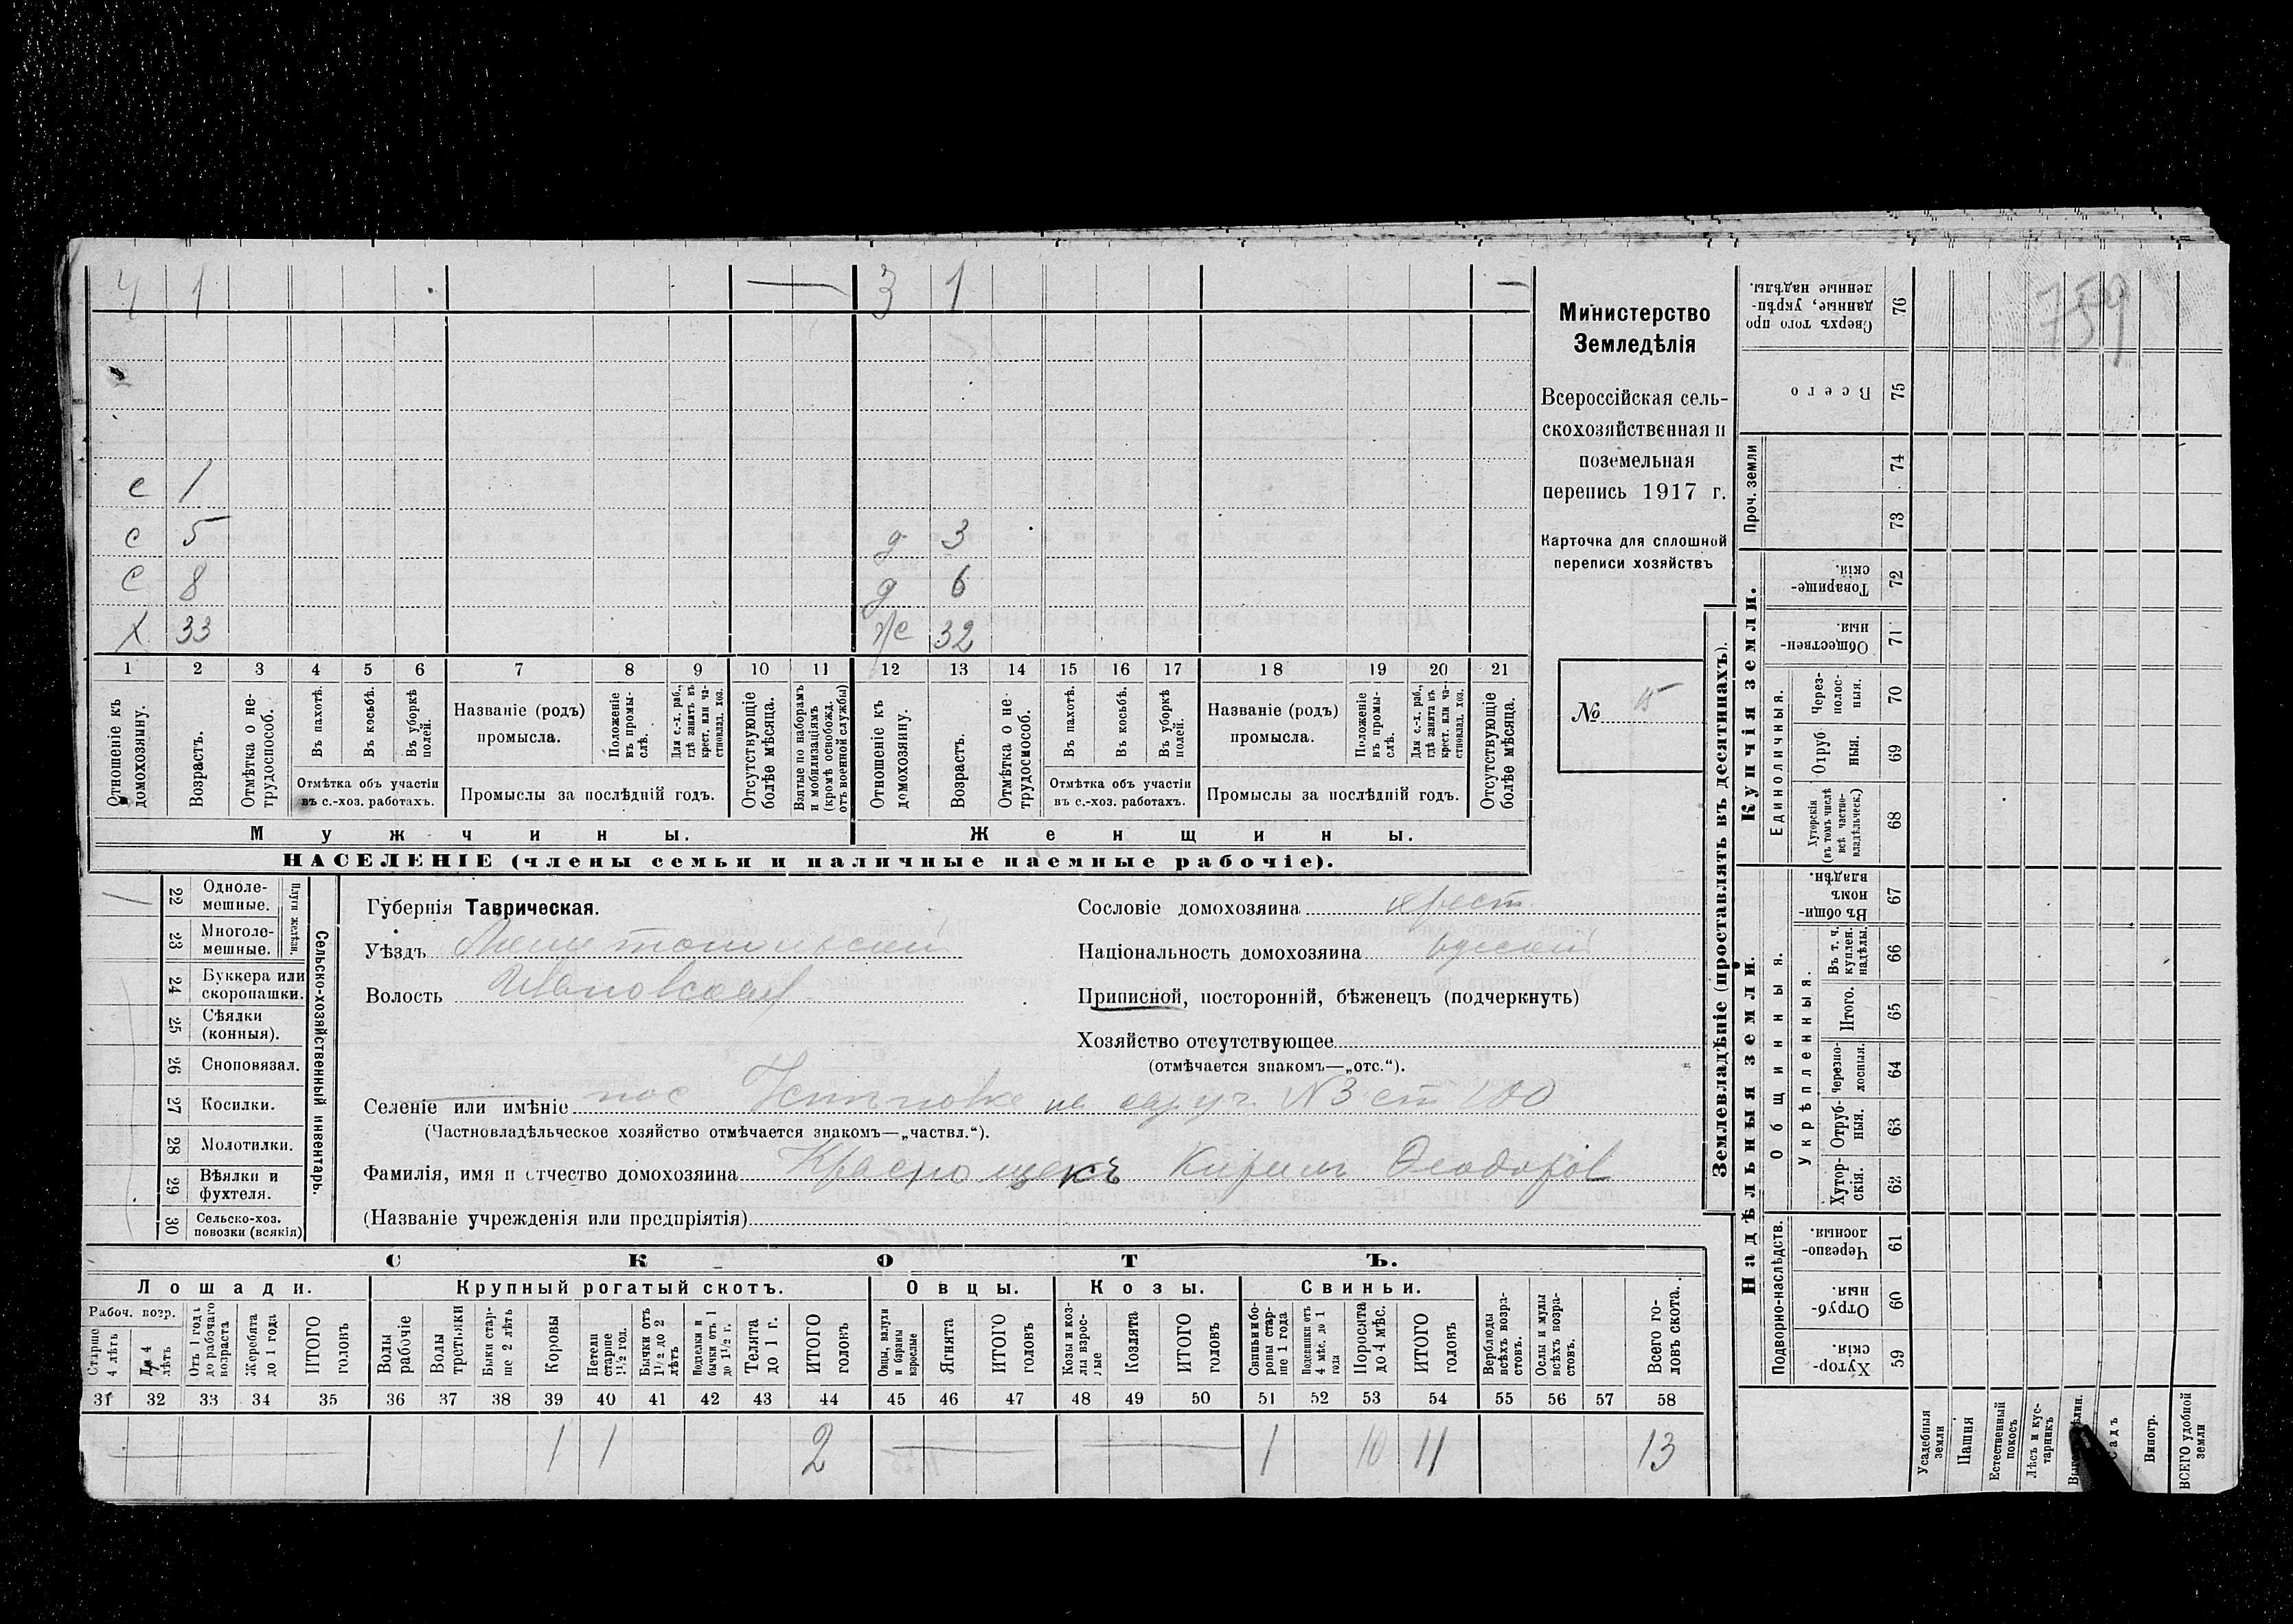 4 1 — 3 1 —
759
с 1
с 5 д 3
с 8 д 6
х 33 же 32
1 2 3 4 5 6 7 8 9 10 11 12 13 14 15 16 17 18 19 20 21
Отношеніе къ домохозяину.
Возрастъ.
Отмѣтка о нетрудоспособ.
Въ пахотѣ.
Въ косьбѣ.
Въ уборкѣ полей.
Отмѣтка объ участіи въ с.-хоз. работахъ.
Названіе (родъ) промысла.
Положеніе въ промыслѣ.
Для с.-х. раб., гдѣ занятъ въ крест. или частновлад. хоз.
Промыслы за послѣдній годъ.
Отсутствующіе болѣе мѣсяца.
Взятые по наборамъ и мобилизаціямъ (кромѣ освобожд. отъ военной службы)
Отношеніе къ домохозяину.
Возрастъ.
Отмѣтка о нетрудоспособ.
Въ пахотѣ.
Въ косьбѣ.
Въ уборкѣ полей.
Отмѣтка объ участіи въ с.-хоз. работахъ.
Названіе (родъ) промысла.
Положеніе въ промыслѣ.
Для с.-х. раб., гдѣ занята въ крест. или частновлад. хоз.
Промыслы за послѣдній годъ.
Отсутствующіе болѣе мѣсяца.
Мужчины. Женщины.
НАСЕЛЕНІЕ (члены семьи и наличные наемные рабочіе).
Министерство
Земледѣлія
Всероссійская сель-
скохозяйственная и
поземельная
перепись 1917 г.
Карточка для сплошной
переписи хозяйствъ
№ 15
Сельско-хозяйственный инвентарь.
Плуги желѣзн.
22 Одноле-
мешные.
23 Многоле-
мешные.
24 Буккера или
скоропашки.
25 Сѣялки
(конныя).
26 Сноповязал.
27 Косилки.
28 Молотилки.
29 Вѣялки и
фухтеля.
30 Сельско-хоз.
повозки (всякія)
Губернія Таврическая.
Уѣздъ Мелитопольскій
Волость Ивановская
Сословіе домохозяина крест.
Національность домохозяина русскій
Приписной, посторонній, бѣженецъ (подчеркнуть)
Хозяйство отсутствующее
(отмѣчается знакомъ—„отс.“).
Селеніе или имѣніе пос № 3 ст 100
(Частновладѣльческое хозяйство отмѣчается знакомъ—„частвл.“).
Фамилія, имя и отчество домохозяина Краснощекъ Кирилъ Феодоров
(Названіе учрежденія или предпріятія)
СКОТЪ.
Лошади. Крупный рогатый скотъ. Овцы. Козы. Свиньи.
Рабоч. возр.
Старше 4 лѣтъ
До 4 лѣтъ
Отъ 1 года до рабочаго возраста
Жеребята до 1 года
ИТОГО головъ
Волы рабочіе
Волы третьяки
Быки старше 2 лѣтъ
Коровы
Нетели старше 1½ год.
Бычки отъ 1½ до 2 лѣтъ
Подтелки и бычки отъ 1 до 1½ г.
Телята до 1 г.
ИТОГО головъ
Овцы, валухи и бараны взрослые
Ягнята
ИТОГО головъ
Козы и козлы взрослые
Козлята
ИТОГО головъ
Свиньи и боровы старше 1 года
Подсвинки отъ 4 мѣс. до 1 года
Поросята до 4 мѣс.
ИТОГО головъ
Верблюды всѣхъ возрастовъ.
Ослы и мулы всѣхъ возрастовъ.
Всего головъ скота.
31 32 33 34 35 36 37 38 39 40 41 42 43 44 45 46 47 48 49 50 51 52 53 54 55 56 57 58
1 1 2 1 10 11 13
Землевладѣніе (проставлять въ десятинахъ).
Купчія земли.
Надѣльныя земли.
Сверхъ того проданные, укрѣпленные надѣлы. 76
Всего 75
Проч. земли 74
73
Товарищескія. 72
Общественныя. 71
Единоличныя.
Черезполосныя. 70
Отрубныя. 69
Хуторскія (въ томъ числѣ всѣ частновладѣльческ.) 68
Общинныя.
Въ общинномъ владѣн. 67
Укрѣпленныя.
Въ т. ч. куплен. надѣлы. 66
Итого. 65
Черезполосныя. 64
Отрубныя. 63
Хуторскія. 62
Подворно-наслѣдств.
Черезполосныя. 61
Отрубныя. 60
Хуторскія. 59
Усадебныя земли
Пашня
Естественный покосъ
Лѣсъ и кустарникъ
Садъ
Виногр.
ВСЕГО удобной земли